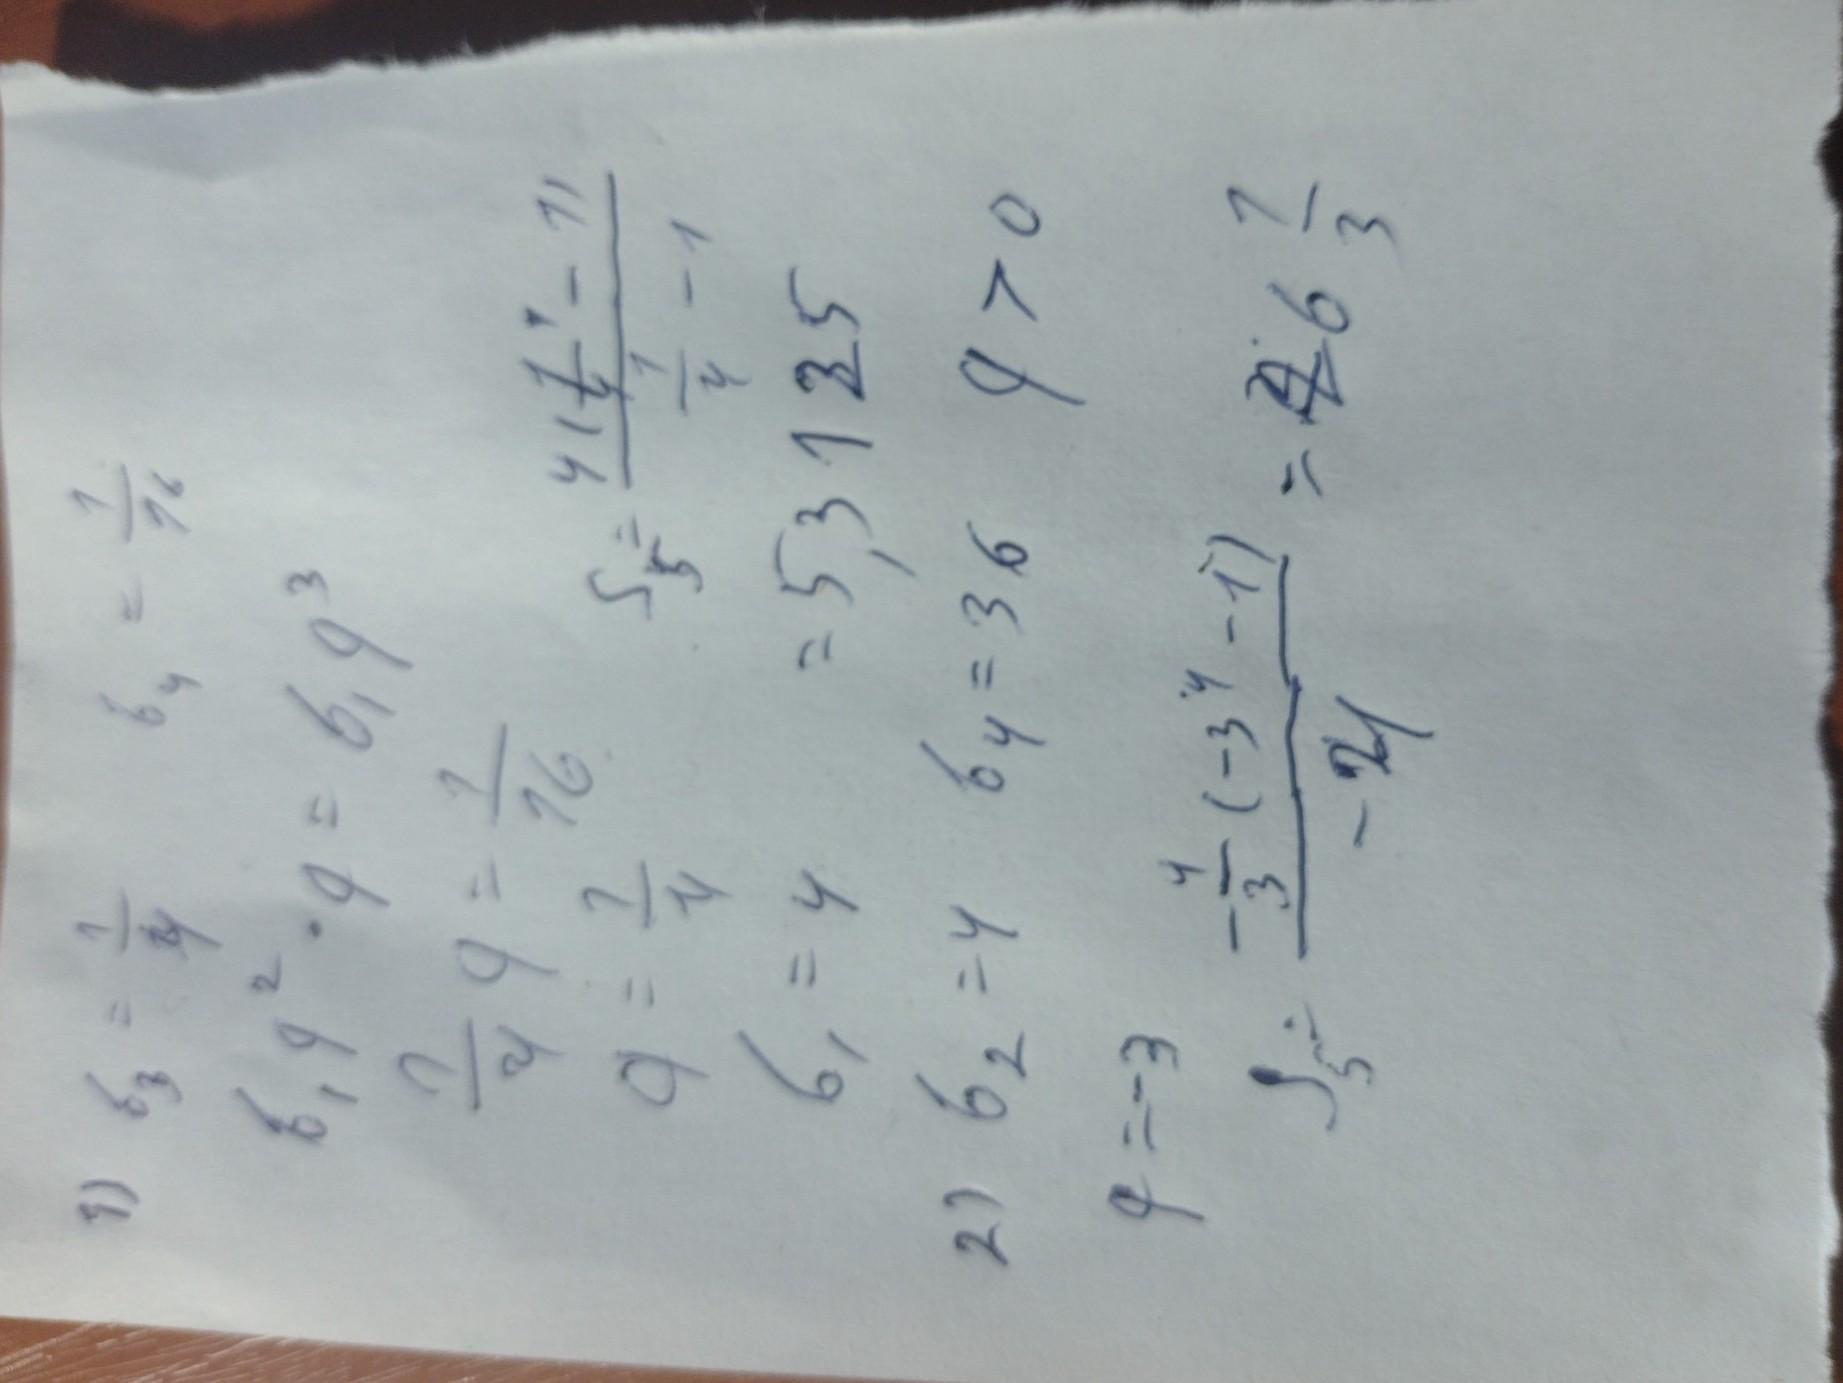 1) b₃ = 1/4 b₄ = 1/16
b₁q² · q = b₁q³
1/4 q = 1/16
q = 1/4 S₅ = 4(1/4 - 1) / 1/4 - 1
b₁ = 4 = 5,3125
2) b₂ = 4 b₄ = 36 q > 0
q = -3
S₅ = -4/3(-3⁴ - 1) / -4 = 6 1/3